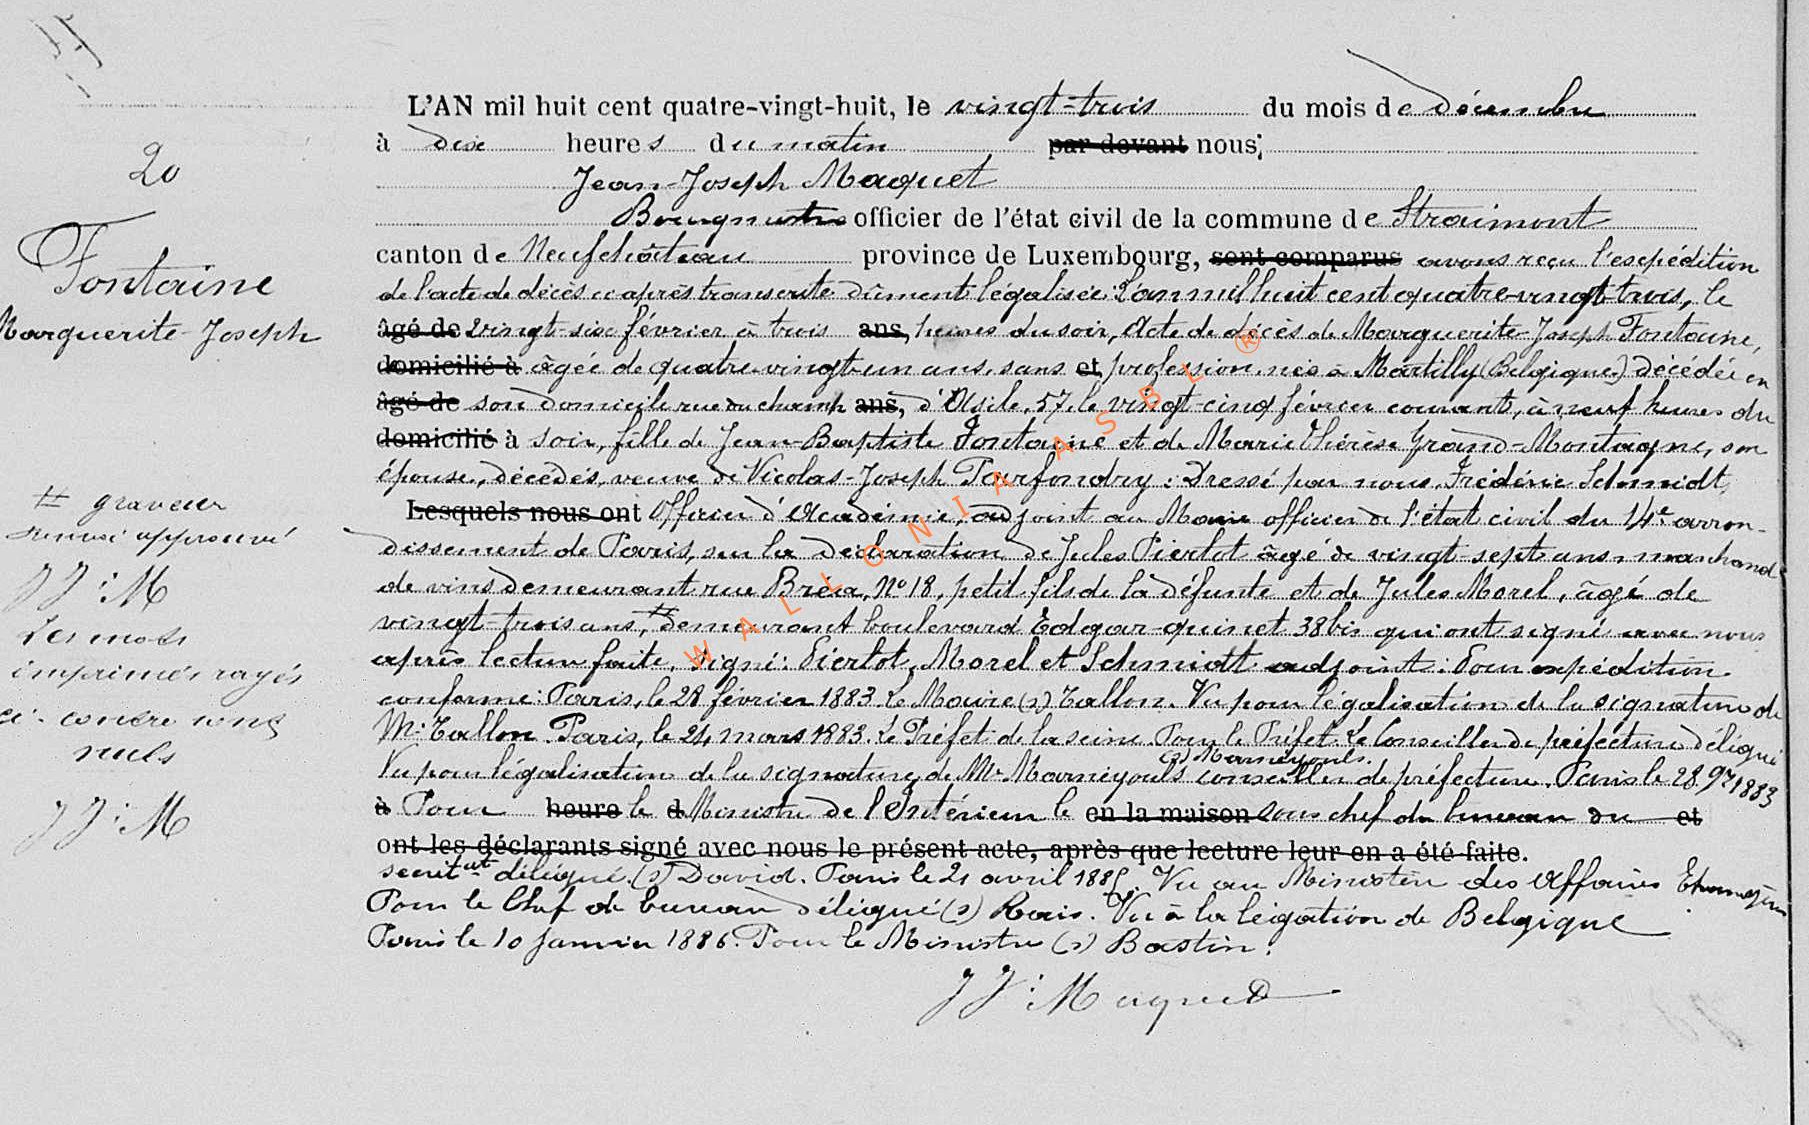 L'AN mil huit cent quatre-vingt-huit, le vingt-trois du mois de décembre
à dix heures du matin par devant nous,
Jean-Joseph Maquet
Bourgmestre officier de l'état civil de la commune de Straimont
canton de Neufchâteau province de Luxembourg, sont comparus avons reçu l'expédition
de l'acte de décès ci après transcrite dûment légalisée: L'an mil huit cent quatre-vingt-trois, le
âgé de vingt-six février à trois ans, heures du soir, Acte de décès de Marguerite-Joseph Fontaine,
domicilié à âgée de quatre-vingt-un ans, sans et profession, née à Martilly (Belgique) décédée en
âgé de son domicile rue du champ ans, d'Asile, 57, le vingt-cinq février courant, à neuf heures du
domicilié à soir, fille de Jean-Baptiste Fontaine et de Marie Thérèse Grand-Montagne, son
épouse, décédés, veuve de Nicolas-Joseph Parfondry: Dressé par nous, Frédéric Schmidt,
Lesquels nous ont Officier d'Académie, adjoint au Maire officier de l'état civil du 14e arron-
dissement de Paris, sur la déclaration de Jules Pierlot âgé de vingt-sept ans, marchand
de vins demeurant rue Bréa, No 18, petit fils de la défunte et de Jules Morel, âgé de
vingt-trois ans, # demeurant boulevard Edgar-quinet 38bis qui ont signé avec nous
après lecture faite. Signé: Pierlot, Morel et Schmidt adjoint: Pour expédition
conforme: Paris, le 28 février 1883. Le Maire (s) Tallon. Vu pour légalisation de la signature de
Mr Tallon. Paris, le 24 mars 1883. Le Préfet de la seine. Pour le Préfet. Le Conseiller de préfecture délégué
(s) Marneyouls.
Vu pour légalisation de la signature de Mr Marneyouls conseiller de préfecture. Paris le 28 9re 1883
à Pour heure le d Ministre de l'Intérieur le en la maison sous chef du bureau du et
ont les déclarants signé avec nous le présent acte, après que lecture leur en a été faite.
délégué. (s) David. Paris le 21 avril 1885. Vu au Ministère des Affaires Etrangères
Pour le Chef de bureau délégué (s) Rais. Vu à la légation de Belgique
Paris le 10 Janvier 1886. Pour le Ministre (s) Bastin.
JJ: Maquet
20
Fontaine
Marguerite-Joseph
# graveur
renvoi approuvé
JJ: M
Les mots
imprimés rayés
ci-contre sont
nuls
JJ: M
WALLONIA ASBL ®